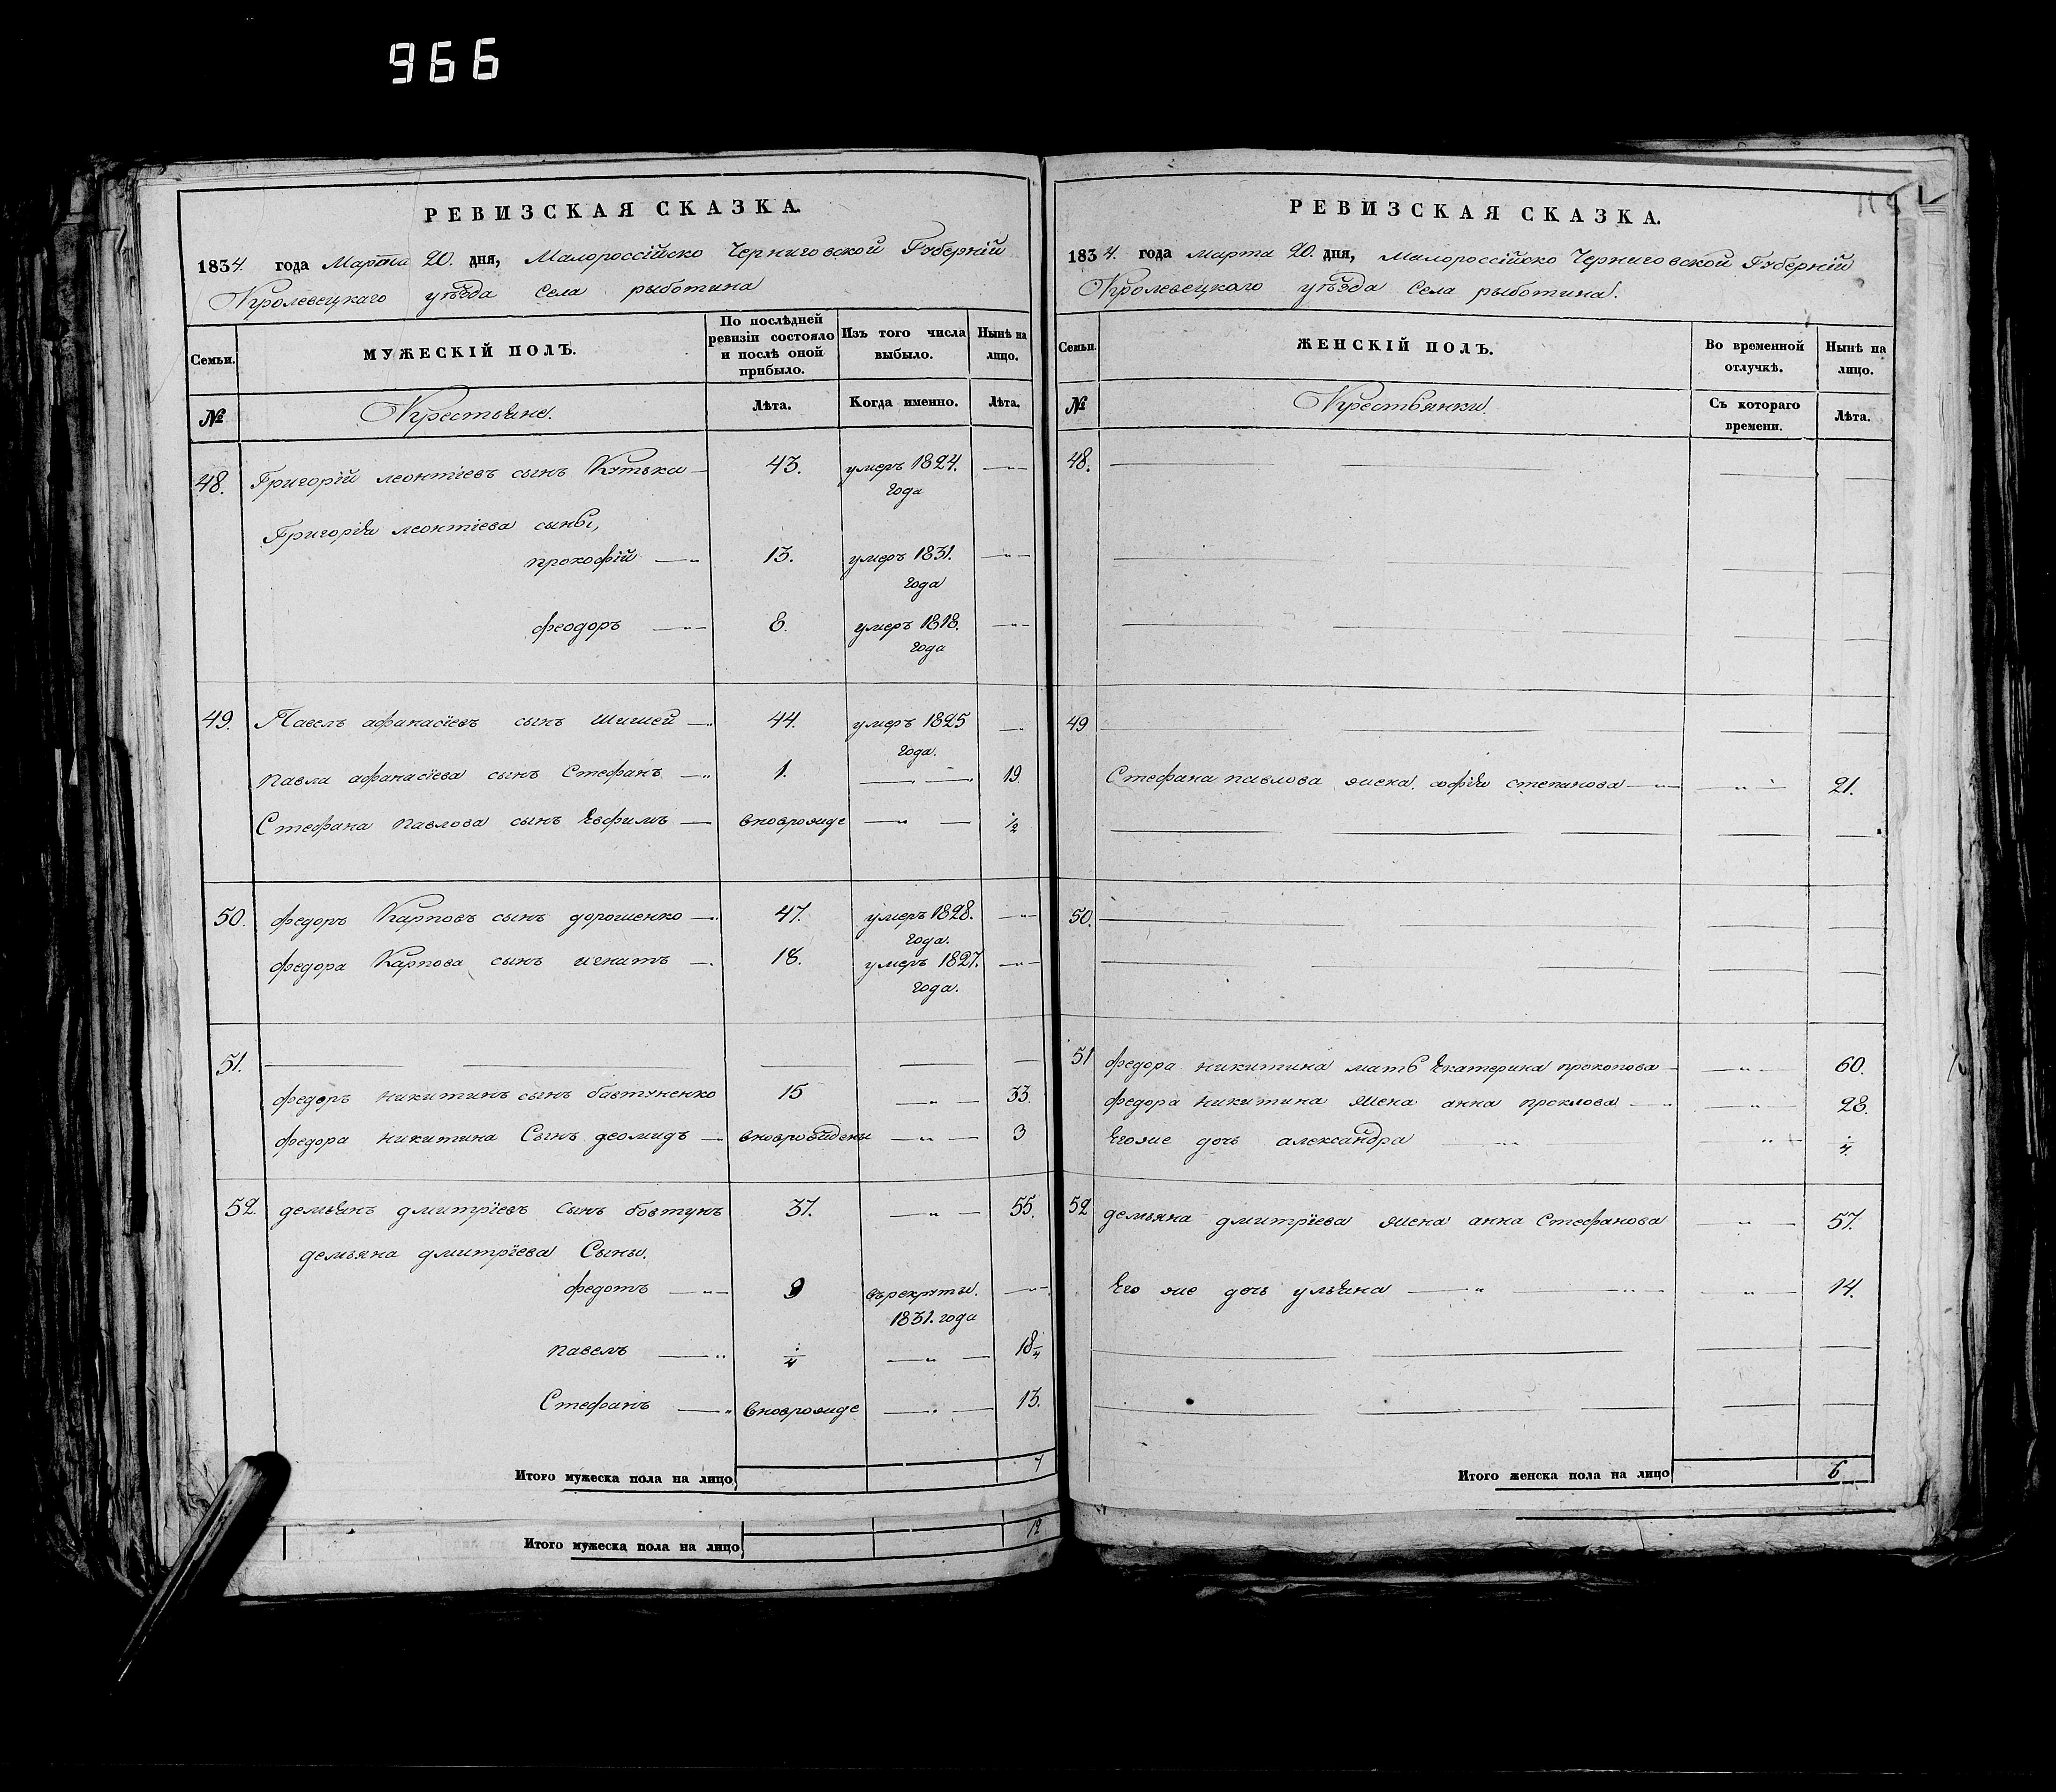 966
РЕВИЗСКАЯ СКАЗКА.
1834. года Марта 20. дня, Малороссійско Черниговской Губерніи
Кролевецкаго уѣзда Села рыботина
Семьи. МУЖЕСКІЙ ПОЛЪ. По послѣдней ревизіи состояло и послѣ оной прибыло. Изъ того числа выбыло. Нынѣ на лицо.
№ Крестьяне. Лѣта. Когда именно. Лѣта.
48. Григорій леонтіевъ сынъ Кутька — 43. умеръ 1824. года —
Григорія леонтіева сыны,
прокофій — 13. умеръ 1831. года —
феодоръ — 8. умеръ 1818. года —
49. Павелъ афанасіевъ сынъ — 44. умеръ 1825 года. —
павла афанасіева сынъ Стефанъ — 1. — 19.
Стефана павлова сынъ Евфимъ — вноврожде — 1/2
50. федоръ Карповъ сынъ дорошенко — 47. умеръ 1828. года. —
федора Карпова сынъ игнатъ — 18. умеръ 1827. года. —
51. —
федоръ никитинъ сынъ бавтуненко 15 — 33.
федора никитина Сынъ деомидъ — — 3
52. демьянъ дмитріевъ сынъ бовтунъ 37. — 55.
демьяна дмитріева Сыны.
федотъ — 9 въ рекруты. 1831. года —
павелъ — 1/4 — 18 1/4
Стефанъ — вноврожде — 13.
Итого мужеска пола на лицо 7
Итого мужеска пола на лицо 12
РЕВИЗСКАЯ СКАЗКА.
1834. года марта 20. дня, малороссійско Черниговской Губерніи
Кролевецкаго уѣзда Села рыботина.
Семьи. ЖЕНСКІЙ ПОЛЪ. Во временной отлучкѣ. Нынѣ на лицо.
№ Крестьянки. Съ котораго времени. Лѣта.
48. —
49 —
Стефана павлова жена софія степанова — — 21.
50. —
51 федора никитина мать Екатерина прокопова — — 60.
федора никитина жена анна проклова — — 28.
Егоже дочь александра — — 1/4
52 демьяна дмитріева жена анна Стефанова — 57.
Его же дочь ульяна — — 14.
Итого женска пола на лицо 6